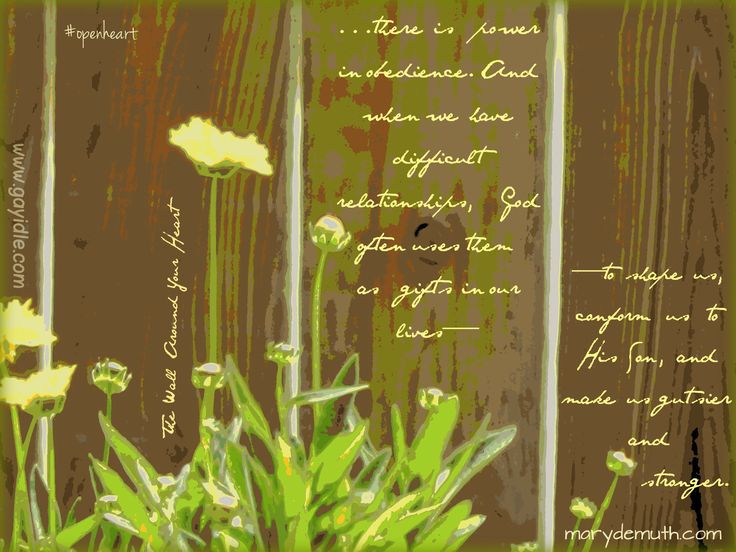 #openheart
...there is power
in obedience. And
when we have
difficult
relationships, God
often uses them
as gifts in our
lives—
—to shape us,
conform us to
His Son, and
make us gutsier
and
stronger.
the Wall Around Your Heart
www.goyidle.com
marydemuth.com